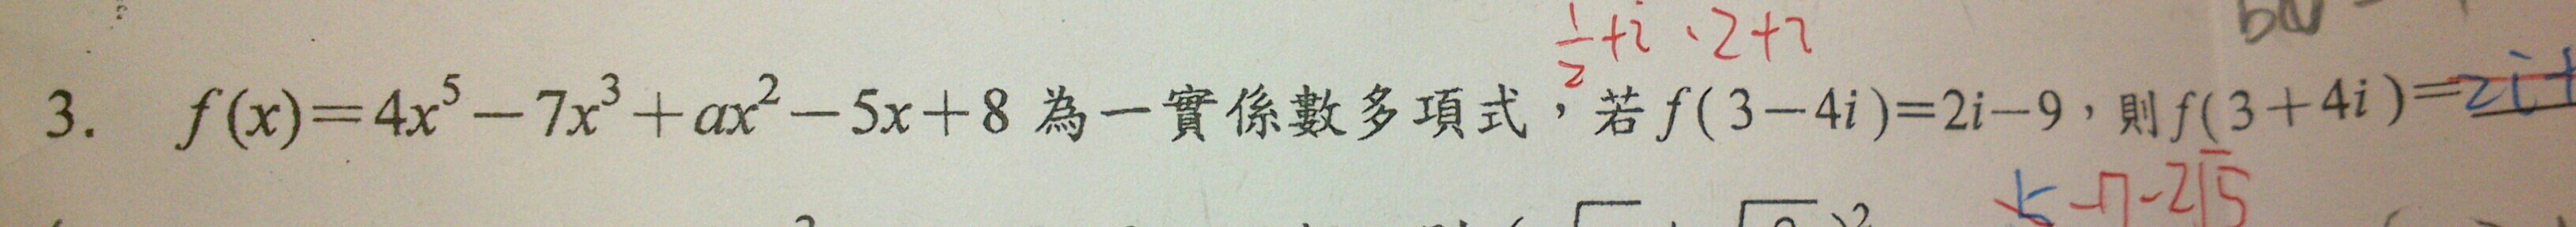 ½+i、2+i
3. f(x)=4x⁵-7x³+ax²-5x+8 為一實係數多項式，若 f(3-4i)=2i-9，則 f(3+4i)=2i+